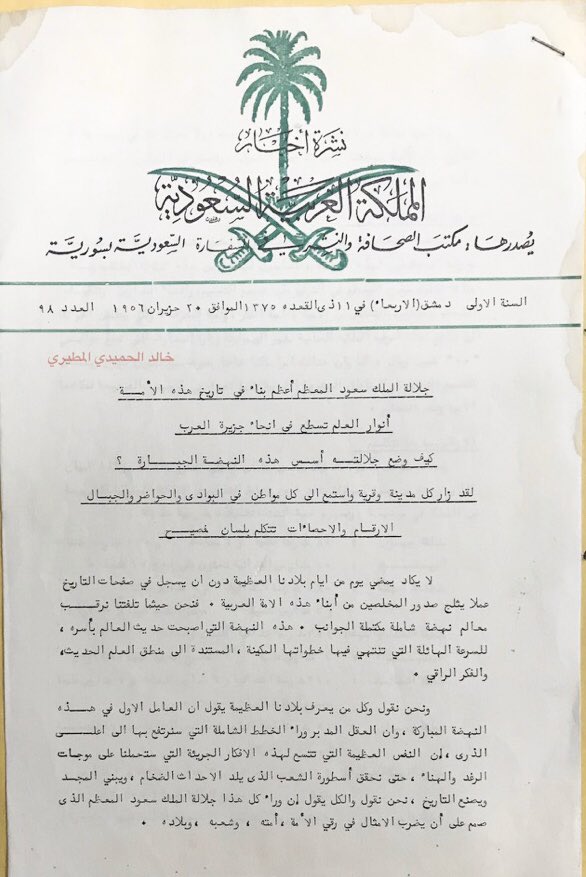 نشرة أخبار
المملكة العربية السعودية
يصدرها، مكتب الصحافة والنشر في السفارة السعودية بسورية
السنة الاولى دمشق (الاربعاء) في ١١ ذى القعده ١٣٧٥ الموافق ٢٠ حزيران ١٩٥٦ العدد ٩٨
خالد الحميدي المطيري
جلالة الملك سعود المعظم أعظم بناء في تاريخ هذه الأمة
أنوار العلم تسطع في انحاء جزيرة العرب
كيف وضع جلالته أسس هذه النهضة الجبارة ؟
لقد زار كل مدينة وقرية واستمع الى كل مواطن في البوادى والحواضر والجبال
الارقام والاحصاءات تتكلم بلسان فصيح
لا يكاد يمضي يوم من ايام بلادنا العظيمة دون ان يسجل في صفحات التاريخ
عملا يثلج صدور المخلصين من أبناء هذه الامة العربية . فنحن حيثما تلفتنا نرقب
معالم نهضة شاملة مكتملة الجوانب . هذه النهضة التي اصبحت حديث العالم بأسره ،
للسرعة الهائلة التي تنتهي فيها خطواتها المكينة ، المستندة الى منطق العلم الحديث،
والفكر الراقي .
ونحن نقول وكل من يعرف بلادنا العظيمة يقول ان العامل الاول في هذه
النهضة المباركة ، وان العقل المدبر وراء الخطط الشاملة التي سنرتفع بها الى اعلى
الذرى ، إن النفس العظيمة التي تتسع لهذه الافكار الجريئة التي ستحملنا على موجات
الرغد والهناء ، حتى نحقق أسطورة الشعب الذى يلد الاحداث الضخام ، ويبني المجد
ويصنع التاريخ ، نحن نقول والكل يقول إن وراء كل هذا جلالة الملك سعود المعظم الذى
صمم على أن يضرب الامثال في رقي الأمة ، أمته ، وشعبه ، وبلاده .